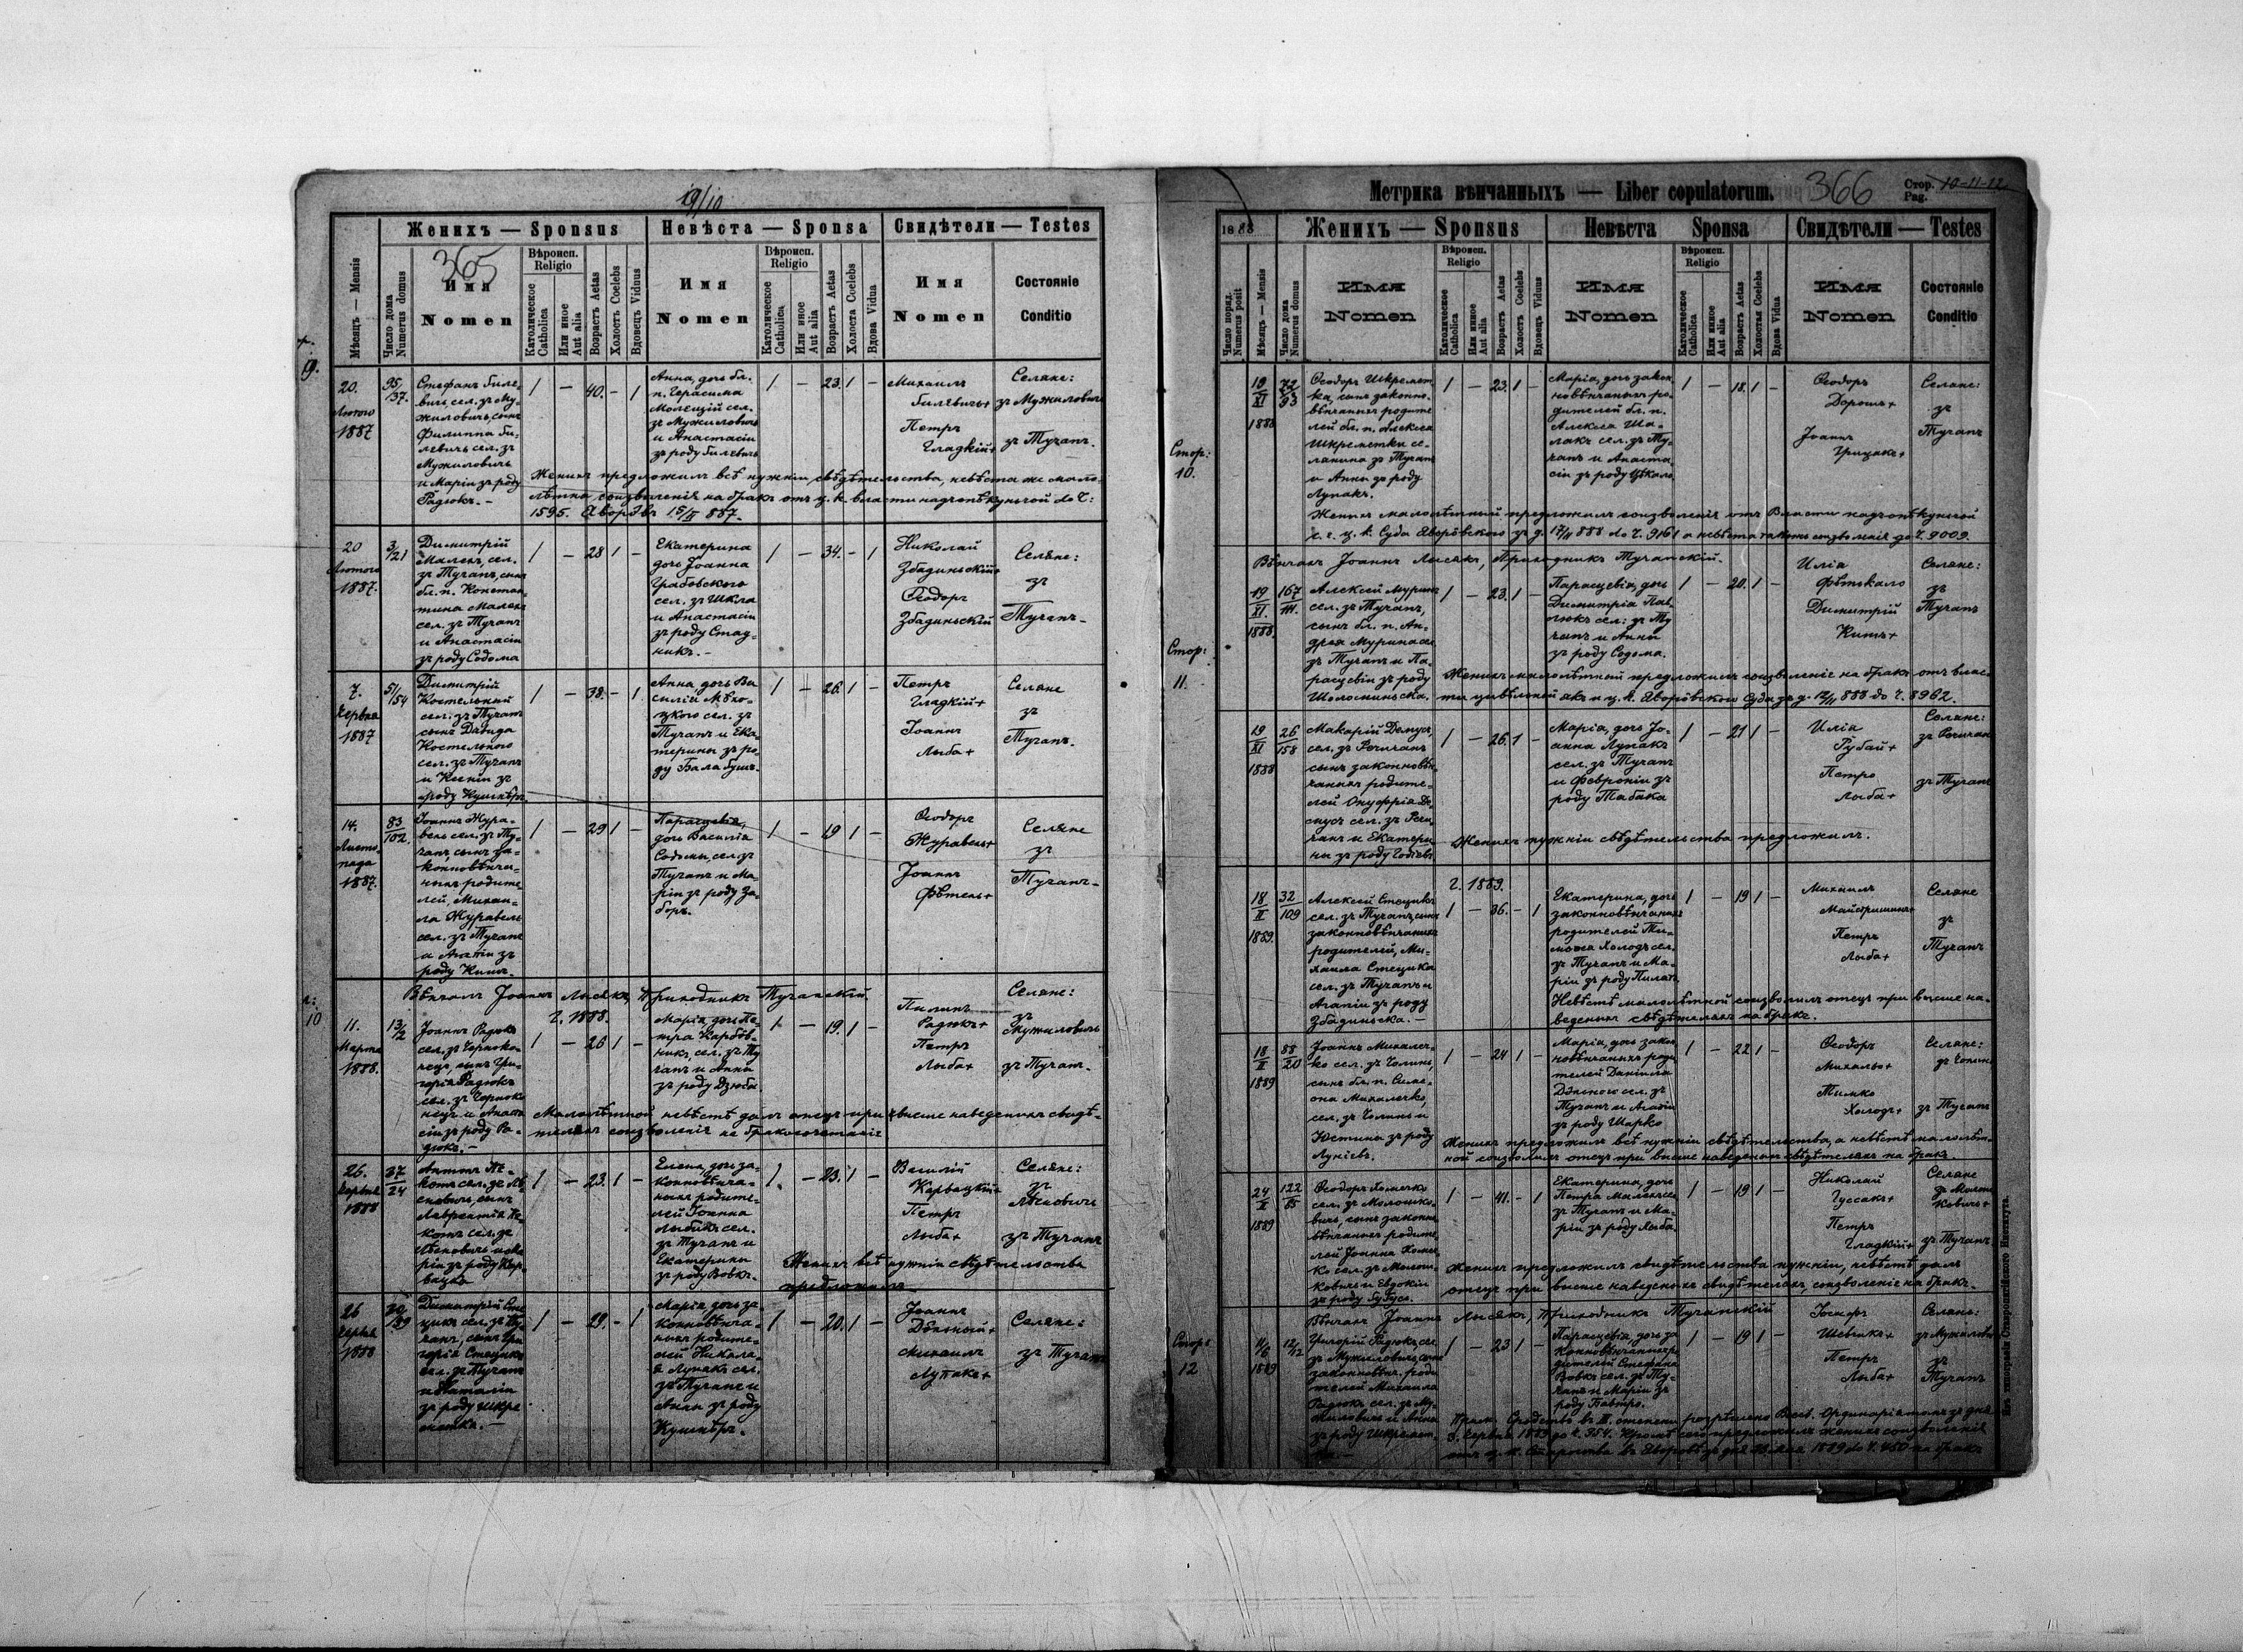 19/10
Женихъ — Sponsus
Невѣста — Sponsa
Свидѣтели — Testes
Мѣсяцъ — Mensis
Число дома
Numerus domus
365
Имя
Nomen
Вѣроисп.
Religio
Католическое
Catholica
Или иное
Aut alia
Возрастъ Aetas
Холостъ Coelebs
Вдовецъ Viduus
Имя
Nomen
Вѣроисп.
Religio
Католическое
Catholica
Или иное
Aut alia
Возрастъ Aetas
Холоста Coelebs
Вдова Vidua
Имя
Nomen
Состояніе
Conditio
20.
Лютого
1887
95/37.
Стефанъ Биле-
вичъ, сел. зъ Му-
жиловичъ, сынъ
Филиппа Би-
левичъ сел. зъ
Мужиловичъ
и Маріи зъ роду
Радюкъ. –
1 — 40. – 1
Анна, дочь бл.
п. Герасима
сел.
зъ Мужиловичъ
и Анастасіи
зъ роду Билевичъ
1. — 23. 1 –
Михаилъ
Билевичъ+
Петръ
Гладкій+
Селяне:
зъ Мужиловичъ
зъ Тучапъ.
Женихъ предложилъ всѣ нужніи свѣдѣтельства, невѣста же мало-
лѣтна, соизволенія на бракъ отъ ц. к. власти надъопѣкунчой до Ч:
1595. Яворôвъ 15/II 887.
20
Лютого
1887.
3/21
Димитрій
Малекъ, сел.
зъ Тучапъ, сынъ
бл. п. Констан-
тина Малекъ
сел. зъ Тучапъ
и Анастасіи
зъ роду Содома
1 — 28 1 –
Екатерина
дочь Іоанна
Грабовского
сел. зъ Шкла
и Анастасіи
зъ роду Стад-
никъ. –
1 — 34. – 1
Николай
Збадинскій+
Ѳеодоръ
Збадинскій
Селяне:
зъ
Тучапъ–
7.
Червня
1887
51/54
Димитрій
Костельный
сел. зъ Тучапъ
сынъ Давида
Костельного
сел. зъ Тучапъ
и Ксеніи зъ
роду Кушнѣръ
1 — 38. – 1
Анна, дочь Ва
силій
сел. зъ
Тучапъ и Ека-
терины зъ ро-
ду Балабушъ.
1 — 26. 1 –
Петръ
Гладкій+
Іоаннъ
Лыба+
Селяне
зъ
Тучапъ.
14.
Листо-
пада
1887.
83/102
Іоаннъ Жура-
вель сел. зъ Ту-
чапъ, сынъ за-
конновѣнча-
ныхъ родите
лей, Михаи-
ла Журавель
сел. зъ Тучапъ
и Агатіи зъ
роду Кишъ
1 — 29 1 –
Парасцевія,
дочь Василія
Содомы, сел. зъ
Тучапъ и Ма-
ріи зъ роду За-
боръ.
1 — 19 1 –
Ѳеодоръ
Журавель+
Іоаннъ
Фѣтель+
Селяне
зъ
Тучапъ–
10
Вѣнчалъ Іоаннъ Лысякъ, Приходникъ Тучапскій.
г. 1888.
11.
Марта
1888.
13/2
Іоаннъ Радюкъ
сел. зъ Чернoко-
нецъ, сынъ Гри-
горія Радюкъ
сел. зъ Черноко
нецъ и Анаста
сіи зъ роду Ра-
дюкъ. –
1 — 26 1 –
Марія, дочь Пе-
тра Карбôв-
никъ, сел. зъ Ту
чапъ и Анны
зъ роду Дзюба
1. — 19. 1 –
Пилипъ
Радюкъ+
Петръ
Лыба+
Селяне:
зъ
Мужиловичъ
зъ Тучапъ.
Малолѣтной невѣстѣ далъ отецъ при высше наведеныхъ свидѣ-
теляхъ соизволеніе на бракосочетаніе
26.
Червня
1888
37/24
1 — 23. 1 –
Елена, дочь за-
конновѣнча-
ныхъ родите-
лей Іоанна
Лыбикъ сел.
зъ Тучапъ и
Екатерины
зъ роду Вовкъ.
1. — 23. 1 –
Василій
Карвацкій+
Петръ
Лыба+
Селяне:
зъ
зъ Тучапъ
Женихъ всѣ нужніи свѣдѣтельства
предложилъ
26
Червня
1888
Димитрій Сте
цикъ сел. зъ Ту
чапъ, сынъ Гри
горія Стецикъ
сел. зъ Тучапъ
и Наталіи
зъ роду Шкре
метка. –
1 — 29. – 1
Марія, дочь за-
конновѣнча-
ныхъ родите-
лей Никола-
я Лупакъ сел.
зъ Тучапъ и
Анны зъ роду
Кушнѣръ.
1 — 20. 1 –
Іоаннъ
Михаилъ
Лупакъ+
Селяне:
зъ Тучапъ
Метрика вѣнчанныхъ — Liber copulatorum.
366
Стор.
Pag.
10-11-12
1888
Женихъ — Sponsus
Невѣста Sponsa
Свидѣтели — Testes
Число поряд.
Numerus posit
Мѣсяцъ — Mensis
Число дома
Numerus domus
Имя
Nomen
Вѣроисп.
Religio
Католическое
Catholica
Или иное
Aut alia
Возрастъ Aetas
Холостъ Coelebs
Вдовецъ Viduus
Имя
Nomen
Вѣроисп.
Religio
Католическое
Catholica
Или иное
Aut alia
Возрастъ Aetas
Холостая Coelebs
Вдова Vidua
Имя
Nomen
Состояніе
Conditio
Стор:
10.
19/XI
1888
72/93
Ѳеодоръ Шкремет
ка, сынъ законно-
вѣнчанныхъ родите
лей бл. п. Алексея
Шкреметки се-
лянина зъ Тучапъ
и Анны зъ роду
Лупакъ.
1 — 23. 1 –
Марія, дочь закон
новѣнчаныхъ ро-
дителей бл. п.
Алексея Ша-
лакъ сел. зъ Ту-
чапъ и Анаста-
сіи зъ роду
1 — 18. 1 –
Ѳеодоръ
Дорошъ+
Іоаннъ
Грицакъ+
Селяне:
зъ
Тучапъ
Женихъ малолѣтный предложилъ соизволенія отъ Власти надъопѣкунчой
с. е. ц. к. Суда Яворôвского зъ д. 17/11 888 до Ч. 9161 а невѣста такожъ соизволенія до Ч. 9009.
Вѣнчалъ Іоаннъ Лысякъ, Приходникъ Тучапскій.
Стор:
11.
19/XI.
1888.
167/111.
Алексѣй Муринъ
сел. зъ Тучапъ,
сынъ бл. п. Ан-
дрея Мурина сел
зъ Тучапъ и Па-
расцевіи зъ роду
Шоломинска.
1 — 23. 1 –
Парасцевія, дочь
Димитрія Пав-
люкъ сел: зъ Ту
чапъ и Анны
зъ роду Содома.
1 — 20. 1 –
Илія
Димитрій
Кишъ+
Селяне:
зъ
Тучапъ
Женихъ малолѣтный предложилъ соизволеніе на бракъ отъ влас-
ти цивѣльной ако и ц. к. Яворôвского Суда зъ д. 12/11 888 до Ч. 8962.
19/XI
1888
26/158
Макарій Демусъ,
сел. зъ Рогичапъ
сынъ законновѣн-
чаныхъ родите-
лей Онуфрія Де-
1 — 26. 1 –
Марія, дочь Іо-
анна Лупакъ
сел. зъ Тучапъ
и Февроніи зъ
роду Табака
1 — 21 1 –
Илія
Рубай+
Петро
Лыба+
Селяне:
зъ Тучапъ
Женихъ нужніи свѣдѣтельства предложилъ.
г. 1889.
18/II
1889.
32/109
Алексѣй Стецикъ
сел. зъ Тучапъ, сынъ
законновѣнчаныхъ
родителей, Ми-
хаила Стецика
сел. зъ Тучапъ и
Агапіи зъ роду
Збадинска. –
1 — 36. – 1
Екатерина, дочь
законновѣнчаныхъ
родителей Ти-
мка Холодъ сел.
зъ Тучапъ и Ма-
ріи зъ роду Пилатъ
1 — 19 1 –
Михаилъ
Майстришинъ+
Петръ
Лыба+
Селяне
зъ
Тучапъ
Невѣстѣ малолѣтной соизволилъ отецъ при высше на-
веденыхъ свѣдѣтеляхъ на бракъ.
18/II
1889
88/20
Іоаннъ Михалеч-
ко сел. зъ Чолынь,
сынъ бл. п. Симе-
она Михалечко,
сел. зъ Чолынь и
Юстины зъ роду
Лунівъ.
1 — 24 1 –
Марія, дочь закон
новѣнчаныхъ роди
телей Даніила
сел. зъ
Тучапъ и Агафіи
зъ роду Шарко
1 — 22 1 –
Ѳеодоръ
Михальо+
Тимко
Холодъ+
Селяне:
зъ Чолынь
зъ Тучапъ
Женихъ предложилъ всѣ нужніи свѣдѣтельства, а невѣстѣ малолѣт-
ной соизволилъ отецъ при высше наведеныхъ свѣдѣтеляхъ на бракъ.
24/II
1889
122/85
Ѳеодоръ Хомечко
сел. зъ Молошко-
вичъ, сынъ законно
вѣнчанныхъ родите
лей Іоанна Хомеч
ко сел. зъ Молош-
ковичъ и Евдокіи
зъ роду
1 — 41. – 1
Екатерина, дочь
Петра Малекъ сел.
зъ Тучапъ и Ма-
ріи зъ роду Лыба.
1 — 19 1 –
Николай
Гуссакъ+
Петръ
Гладкій+
Селяне
зъ Молош
ковичъ+
зъ Тучапъ
Женихъ предложилъ свидѣтельства нужніи, невѣстѣ далъ
отецъ при высше наведеныхъ свидѣтеляхъ, соизволеніе на бракъ.
Вѣнчалъ Іоаннъ Лысякъ, Приходникъ Тучапскій
Стор:
12
11/6
1889
12/12
Григорій Радюкъ, сел.
зъ Мужиловичъ, сынъ
законновѣн. роди
телей Михаила
Радюкъ сел. зъ Му-
жиловичъ и Анны
зъ роду Шкремет-
1 — 23 1 –
Парасцевія, дочь за
конновѣнчанныхъ ро
дителей Стефана
Вовкъ сел. зъ Ту-
чапъ и Маріи зъ
роду
1 — 19 1 –
Іосифъ
Шевчикъ+
Петръ
Лыба+
Селяне:
зъ Мужилович
зъ
Тучапъ
Прим. Сродство въ III. степени розрѣшено Всесв. Ординаріятомъ зъ дня
3. Червня 1889 до Ч. 354. Кромѣ сего предложилъ женихъ соизволенія
отъ ц. к. Староства въ Яворовѣ зъ дня мая 1889 до Ч. 450 на бракъ
Изъ типографіи Ставропигійского Института.